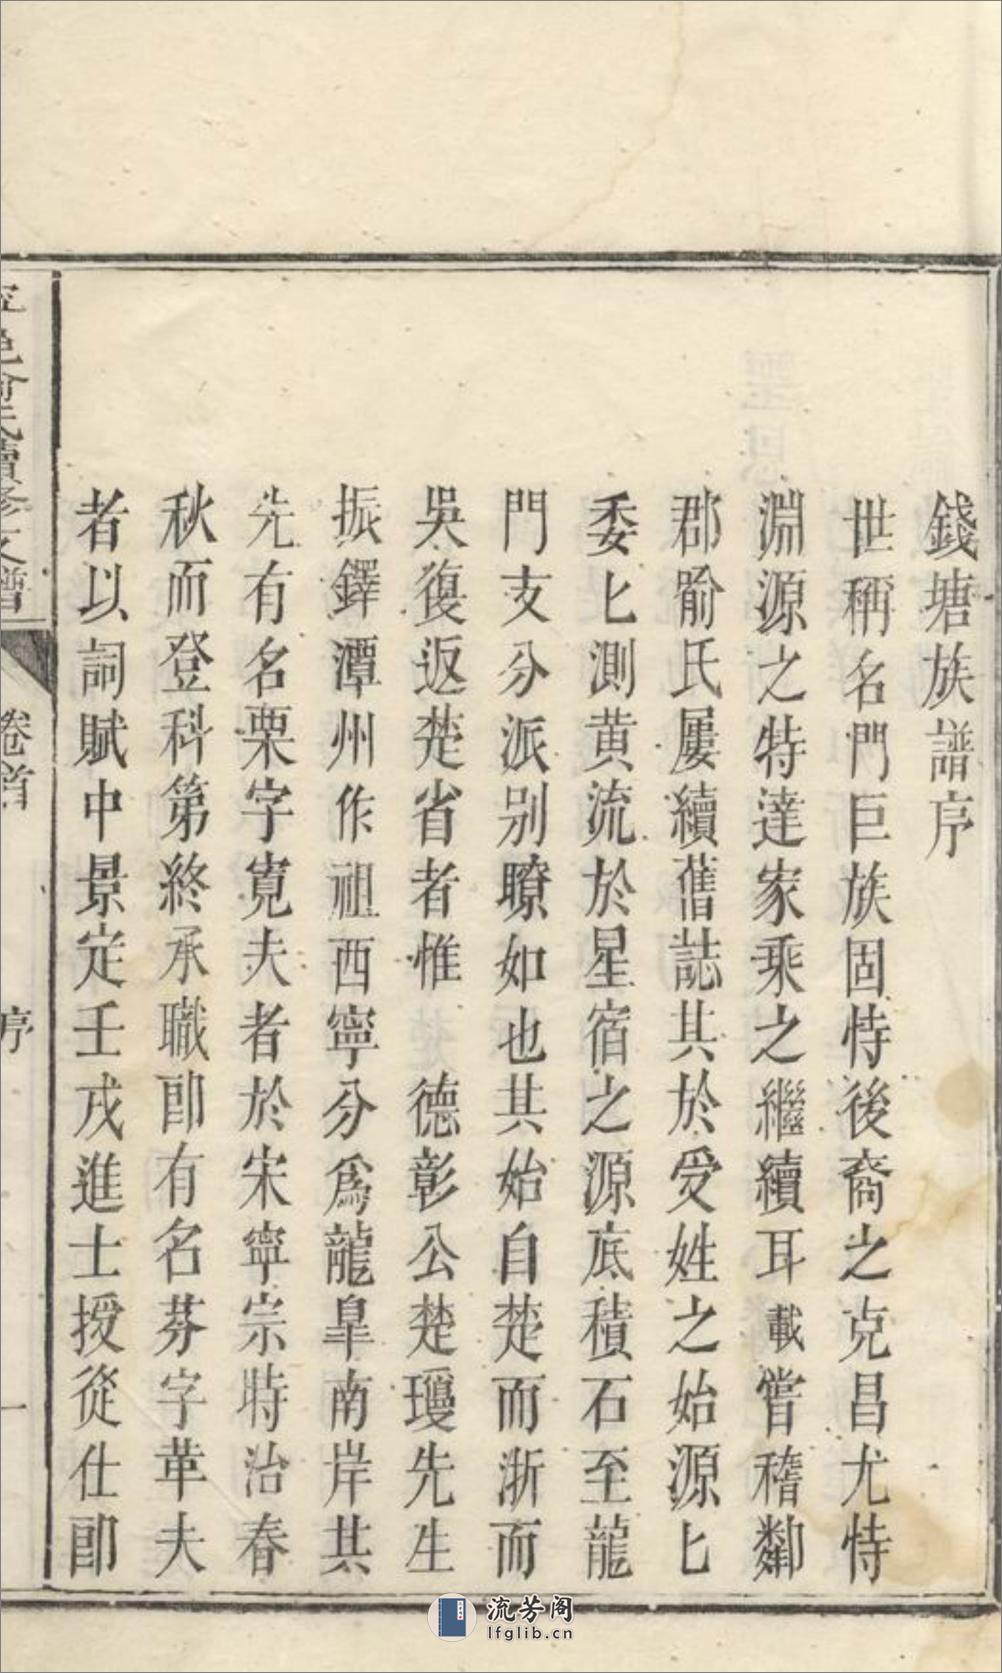 錢塘族譜序
世稱名門巨族固恃後裔之克昌尤恃
淵源之特達家乘之繼續耳載嘗稽鄰
郡喻氏屢續舊誌其於受姓之始源匕
委匕測黄流於星宿之源底積石至龍
門支分派别瞭如也其始自楚而浙而
吳復返楚省者惟 德彰公楚璦先生
振鐸潭州作祖西寧分爲龍皐南岸其
先有名栗字寬夫者於宋寧宗時治春
秋而登科第終承職郎有名芬字華夫
者以詞賦中景定壬戌進士授從仕郎
邑喻氏續修支譜
卷首
序
一
流芳阁
lfglib.cn